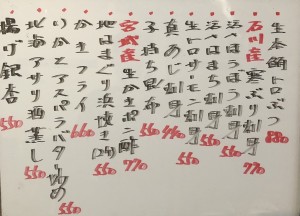 生本鮪トロぶつ 880
石川産 寒ぶり刺身 770
活〆ほうぼう刺身 550
活〆はまち刺身 550
生トロサーモン刺身 550
真あじ刺身 440
子持ち昆布 550
宮城産 生かきポン酢 770
地はまぐり浜焼き 550
かきフライ 660
いかとアスパラバター炒め 550
北海アサリ酒蒸し 550
揚げ銀杏 550